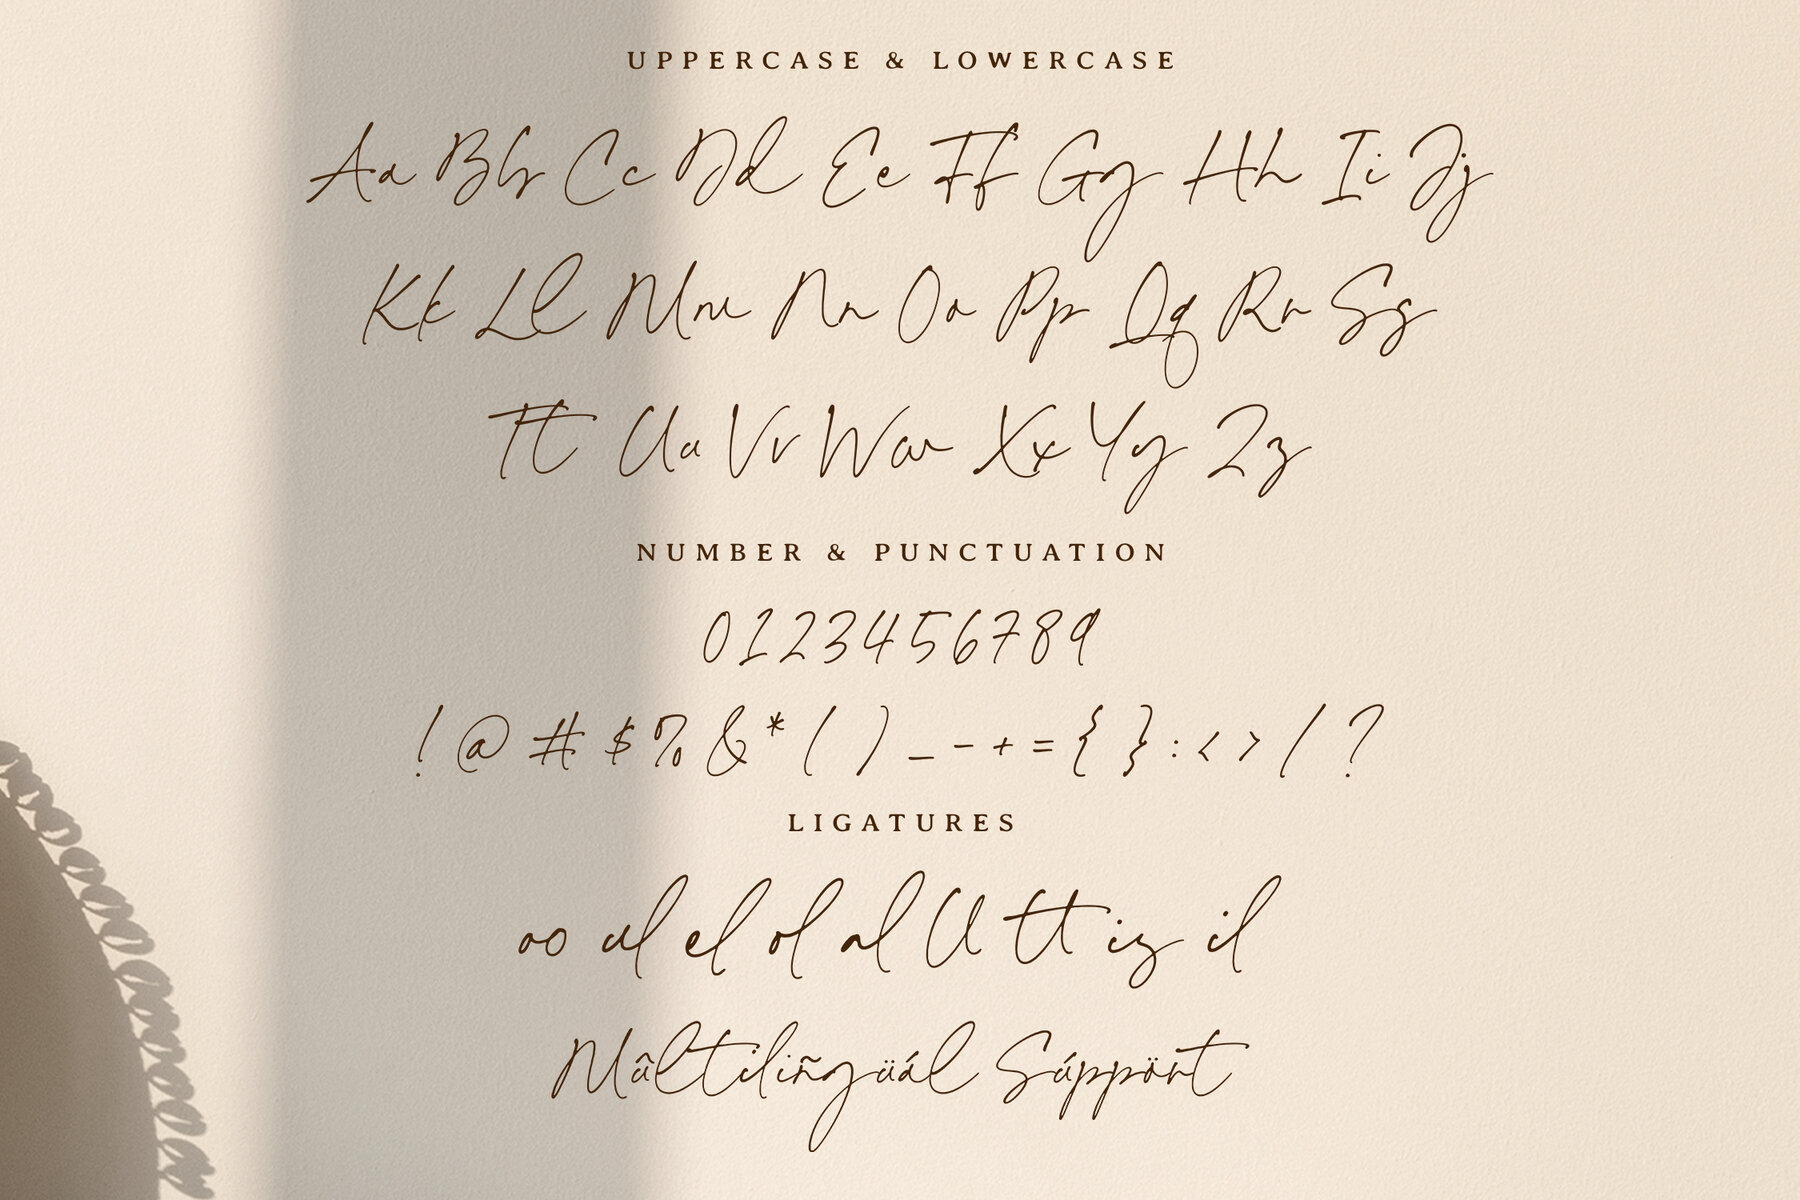 UPPERCASE & LOWERCASE
Aa Bb Cc Dd Ee Ff Gg Hh Ii Jj
Kk Ll Mm Nn Oo Pp Qq Rr Ss
Tt Uu Vv Ww Xx Yy Zz
NUMBER & PUNCTUATION
0123456789
! @ # $ % & * ( ) _ - + = { } : < > / ?
LIGATURES
oo ul el ol al ll tt is il
Mûltiliñgüál Súppört